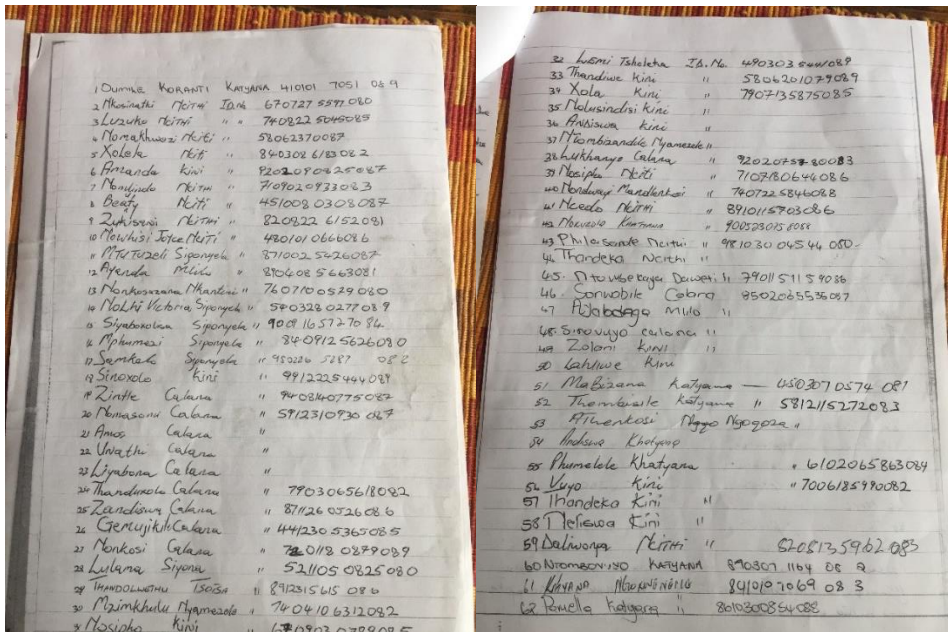 1 DUMILE KORANTI KATYANA 410101 7051 089
2 Nkosinathi NCITHI ID.No 670727 5597 080
3 Luzuko NCITHI " " 740822 5045085
4 Nomakhwazi Nciti " 58062370087
5 Xolela Nciti " 840308 6183 082
6 Amanda Kini " 9202090825087
7 NCITHI " 7109020933083
8 Beaty Nciti " 451008 0308087
9 Zukiswa NCITHI " 820822 6152081
10 Joyce NCITI " 480101 0666086
11 Siponyela " 871002 5426087
12 Ayenda Mlulu " 890408 5663081
13 Nonkosazana Nkantini " 760710 0529 080
14 Victoria Siponyela " 570328 0277089
15 Siyabokolwa Siponyela " 900916 5727084
16 Mphumezi Siponyela " 840912 5626080
17 Samkele Siponyela " 980226 5287 082
18 Sinoxolo Kini " 991222 5444 089
19 Zintle Calana " 940814 0775 087
20 Calana " 591231 0930 087
21 Amos Calana "
22 Unathi Calana "
23 Liyabona Calana "
24 Thanduxolo Calana " 790306 5618082
25 Zandiswa Calana " 871126 0526 086
26 Calana " 441230 5365085
27 Nonkosi Calana " 720118 0879089
28 Lulama Siyona " 521105 0825080
29 THANDOLWETHU TSOTSA " 891231 5615 086
30 Mzimkhulu Nyamezele " 740410 6312082
31 Nosipho Kini
32 Tsholetha ID.No. 490303 5441089
33 Thandiwe Kini " 5806201079089
34 Xola Kini " 7907135875085
35 Kini "
36 Andiswa Kini "
37 Ntombizandile Nyamezele "
38 Lukhanyo Calana "
39 Nosipho Nciti " 7107180644086
40 Nondwayi " 7407225846088
41 Ncedo NCITHI " 8910115703086
42 KHATYANA "
43 Ncithi " 981030 0454 080
44 Thandeka Ncithi "
45. "
46. Sonwabile Calana 8502065536087
47 Mlulu "
48. Sinovuyo Calana "
49 Zolani KINI "
50 Kini
51 MaBizana Katyana — 450307 0574 081
52 Thembisile Katyana " 5812115272083
53 Athenkosi Ngqo Ngogoza "
54 Andiswa Khatyana
55 Phumelele Khatyana " 6102065863084
56 Vuyo Kini " 7006185990082
57 Thandeka Kini "
58 Meliswa Kini "
59 Daliwonga NCITHI " 8208135962083
60 NTOMBOVUYO KATYANA 890307 1164 08 2
61 "
62 Katyana " 8610300854088